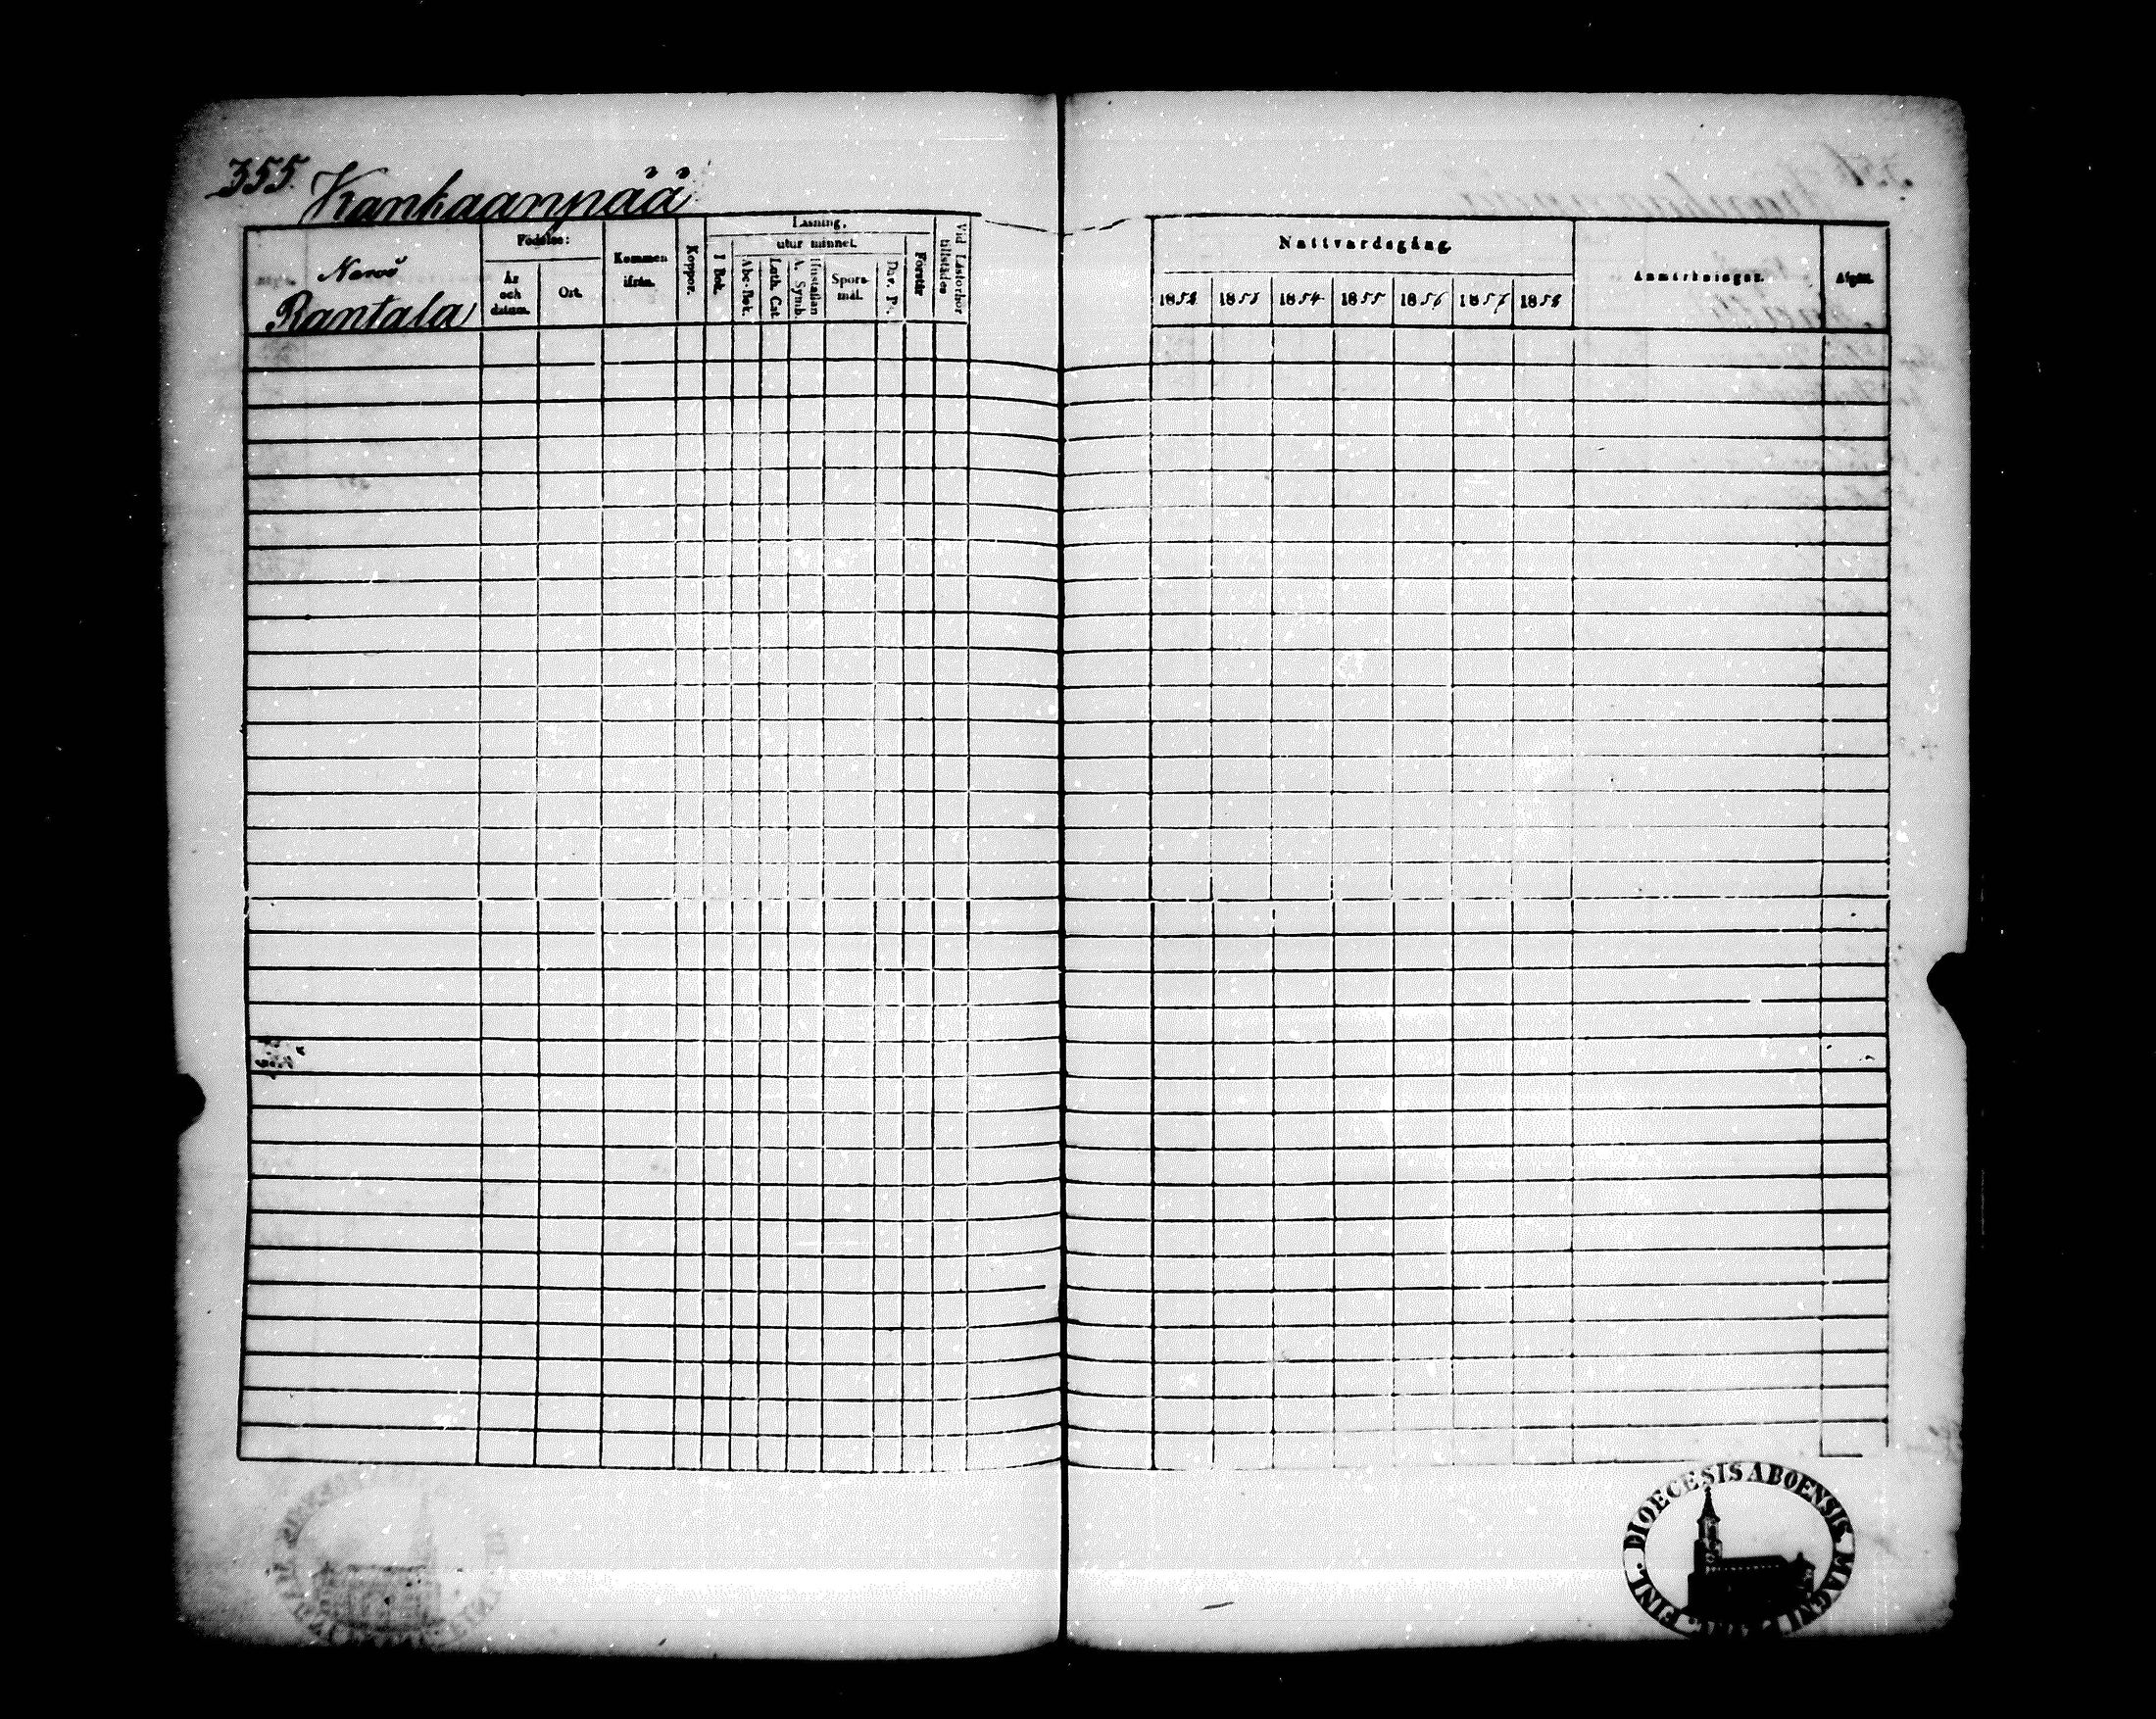 355. Kankaanpää
Läsning,
Födelse:
utur minnet.
Nattvardsgång.
Kommen ifrån.
Koppor.
I Bok.
Abc-Bok.
Luth. Cat.
Hustaflan A. Symb.
Spörsmål.
Dav. Ps.
Förstår
Vid Läsförhör tillstädes
Anmärkningar.
Afgått.
År och datum.
Ort.
1852 1853 1854 1855 1856 1857 1858
Rantala
FINL. DIOECESIS ABOENSIS MAGNI